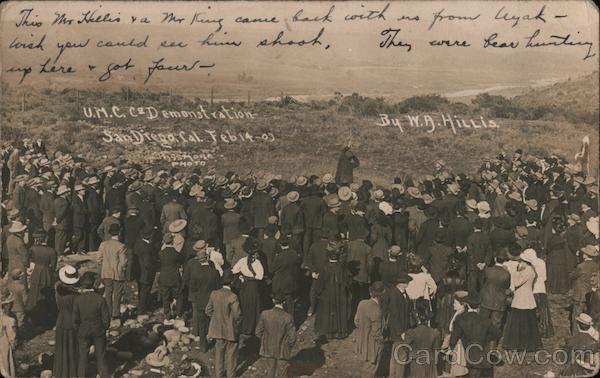 This Mr Hillis & a Mr King came back with us from Uyak –
wish you could see him shoot. They were bear hunting
up here & got four –
U.M.C. Co Demonstration
San Diego, Cal. Feb 14-09
By W.A. Hillis.
PHOTO
CardCow.com